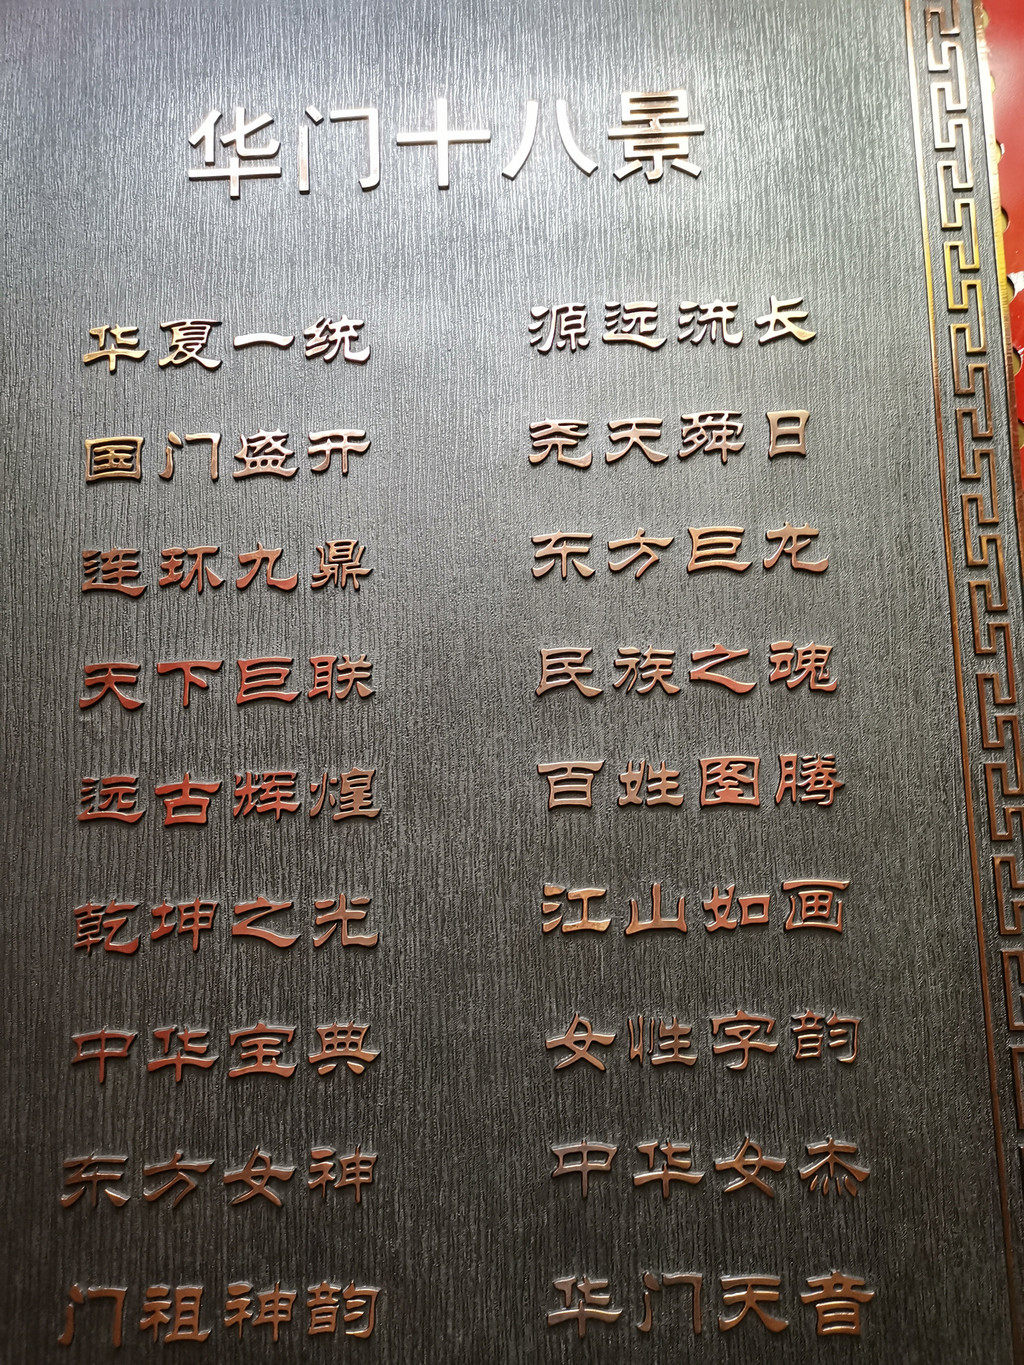 华门十八景
华夏一统 源远流长
国门盛开 尧天舜日
连环九鼎 东方巨龙
天下巨联 民族之魂
远古辉煌 百姓图腾
乾坤之光 江山如画
中华宝典 女性字韵
东方女神 中华女杰
门祖神韵 华门天音